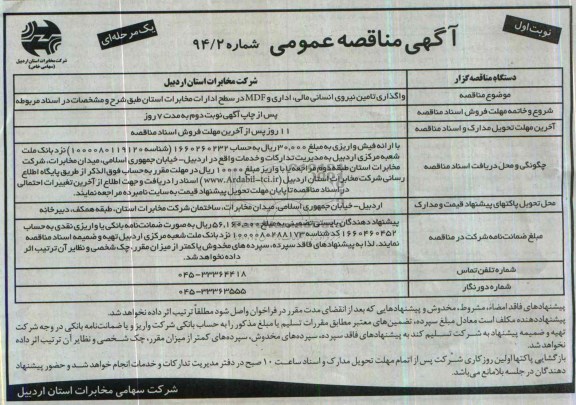 نوبت اول
آگهی مناقصه عمومی شماره ۹۴/۲
یک مرحله‌ای
شرکت مخابرات استان اردبیل
(سهامی خاص)
دستگاه مناقصه گزار
شرکت مخابرات استان اردبیل
موضوع مناقصه
واگذاری تامین نیروی انسانی مالی، اداری و MDF در سطح ادارات مخابرات استان طبق شرح و مشخصات در اسناد مربوطه
شروع و خاتمه مهلت فروش اسناد مناقصه
پس از چاپ آگهی نوبت دوم به مدت ۷ روز
آخرین مهلت تحویل مدارک و اسناد مناقصه
۱۱ روز پس از آخرین مهلت فروش اسناد مناقصه
چگونگی و محل دریافت اسناد مناقصه
با ارائه فیش واریزی به مبلغ ۳۰,۰۰۰ ریال به حساب ۱۶۶۰۲۶۰۲۳۲ (شناسه ۱۰۰۰۰۸۰۱۱۹۱۲۰) نزد بانک ملت
شعبه مرکزی اردبیل به مدیریت تدارکات و خدمات واقع در اردبیل - خیابان جمهوری اسلامی، میدان مخابرات، شرکت
مخابرات استان طبقه دوم مراجعه یا با واریز مبلغ ۱۰۰۰۰ ریال در مهلت مقرر به حساب فوق الذکر از طریق پایگاه اطلاع
رسانی شرکت مخابرات استان اردبیل (www.Ardabil-tci.ir) اسناد را دریافت و جهت اطلاع از آخرین تغییرات احتمالی
در اسناد مناقصه تا پایان مهلت تحویل پیشنهاد قیمت به سایت نامبرده مراجعه نمایند.
محل تحویل پاکتهای پیشنهاد قیمت و مدارک
اردبیل - خیابان جمهوری اسلامی، میدان مخابرات، ساختمان شرکت مخابرات استان، طبقه همکف، دبیرخانه
مبلغ ضمانت‌نامه شرکت در مناقصه
پیشنهاد دهندگان بایستی تضمینی به مبلغ ۵۶,۱۶۰,۰۰۰ ریال به صورت ضمانت‌نامه بانکی یا واریزی نقدی به حساب
۱۶۶۰۴۶۰۴۵۲ کد شناسه ۱۰۰۰۰۸۰۲۸۸۱۷۳ نزد بانک ملت شعبه مرکزی اردبیل تهیه و ضمیمه اسناد مناقصه
نمایند. لذا به پیشنهادهای فاقد سپرده، سپرده های مخدوش یا کمتر از میزان مقرر، چک شخصی و نظایر آن ترتیب اثر
داده نخواهد شد.
شماره تلفن تماس
۰۴۵-۳۳۳۶۴۴۱۸
شماره دورنگار
۰۴۵-۳۳۳۶۳۵۵۵
پیشنهادهای فاقد امضاء، مشروط، مخدوش و پیشنهادهایی که بعد از انقضای مدت مقرر در فراخوان واصل شود مطلقاً ترتیب اثر داده نخواهد شد.
پیشنهاددهنده مکلف است معادل مبلغ سپرده، تضمین‌های معتبر مطابق مقررات تسلیم یا مبلغ مذکور را به حساب بانکی شرکت واریز و یا ضمانت‌نامه بانکی در وجه شرکت
تهیه و ضمیمه پیشنهاد به شرکت تسلیم کند به پیشنهادهای فاقد سپرده، سپرده‌های مخدوش، سپرده‌های کمتر از میزان مقرر، چک شخصی و نظایر آن ترتیب اثر داده
نخواهد شد.
بازگشایی پاکتها اولین روز کاری شرکت پس از اتمام مهلت تحویل مدارک و اسناد ساعت ۱۰ صبح در دفتر مدیریت تدارکات و خدمات انجام خواهد شد و حضور پیشنهاد
دهندگان در جلسه بلامانع می‌باشد.
شرکت سهامی مخابرات استان اردبیل